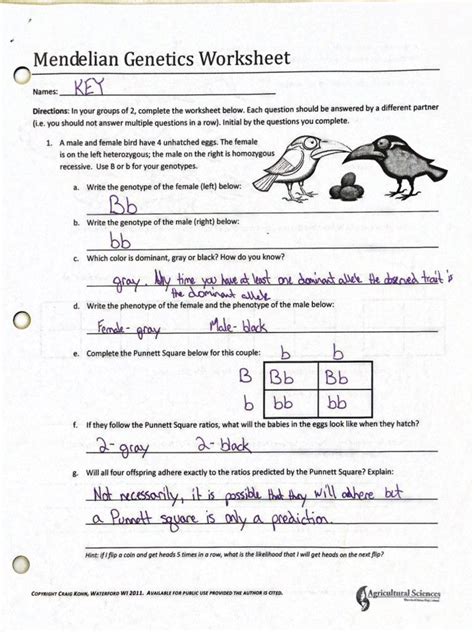 Mendelian Genetics Worksheet
Names: KEY
Directions: In your groups of 2, complete the worksheet below. Each question should be answered by a different partner
(i.e. you should not answer multiple questions in a row). Initial by the questions you complete.
1. A male and female bird have 4 unhatched eggs. The female
is on the left heterozygous; the male on the right is homozygous
recessive. Use B or b for your genotypes.
a. Write the genotype of the female (left) below:
Bb
b. Write the genotype of the male (right) below:
bb
c. Which color is dominant, gray or black? How do you know?
gray. Any time you have at least one dominant allele the observed trait is
the dominant allele
d. Write the phenotype of the female and the phenotype of the male below:
Female- gray Male- black
e. Complete the Punnett Square below for this couple:
b b
B Bb Bb
b bb bb
f. If they follow the Punnett Square ratios, what will the babies in the eggs look like when they hatch?
2- gray 2- black
g. Will all four offspring adhere exactly to the ratios predicted by the Punnett Square? Explain:
Not necessarily, it is possible that they will adhere but
a Punnett square is only a prediction.
Hint: if I flip a coin and get heads 5 times in a row, what is the likelihood that I will get heads on the next flip?
COPYRIGHT CRAIG KOHN, WATERFORD WI 2011. AVAILABLE FOR PUBLIC USE PROVIDED THE AUTHOR IS CITED.
Agricultural Sciences